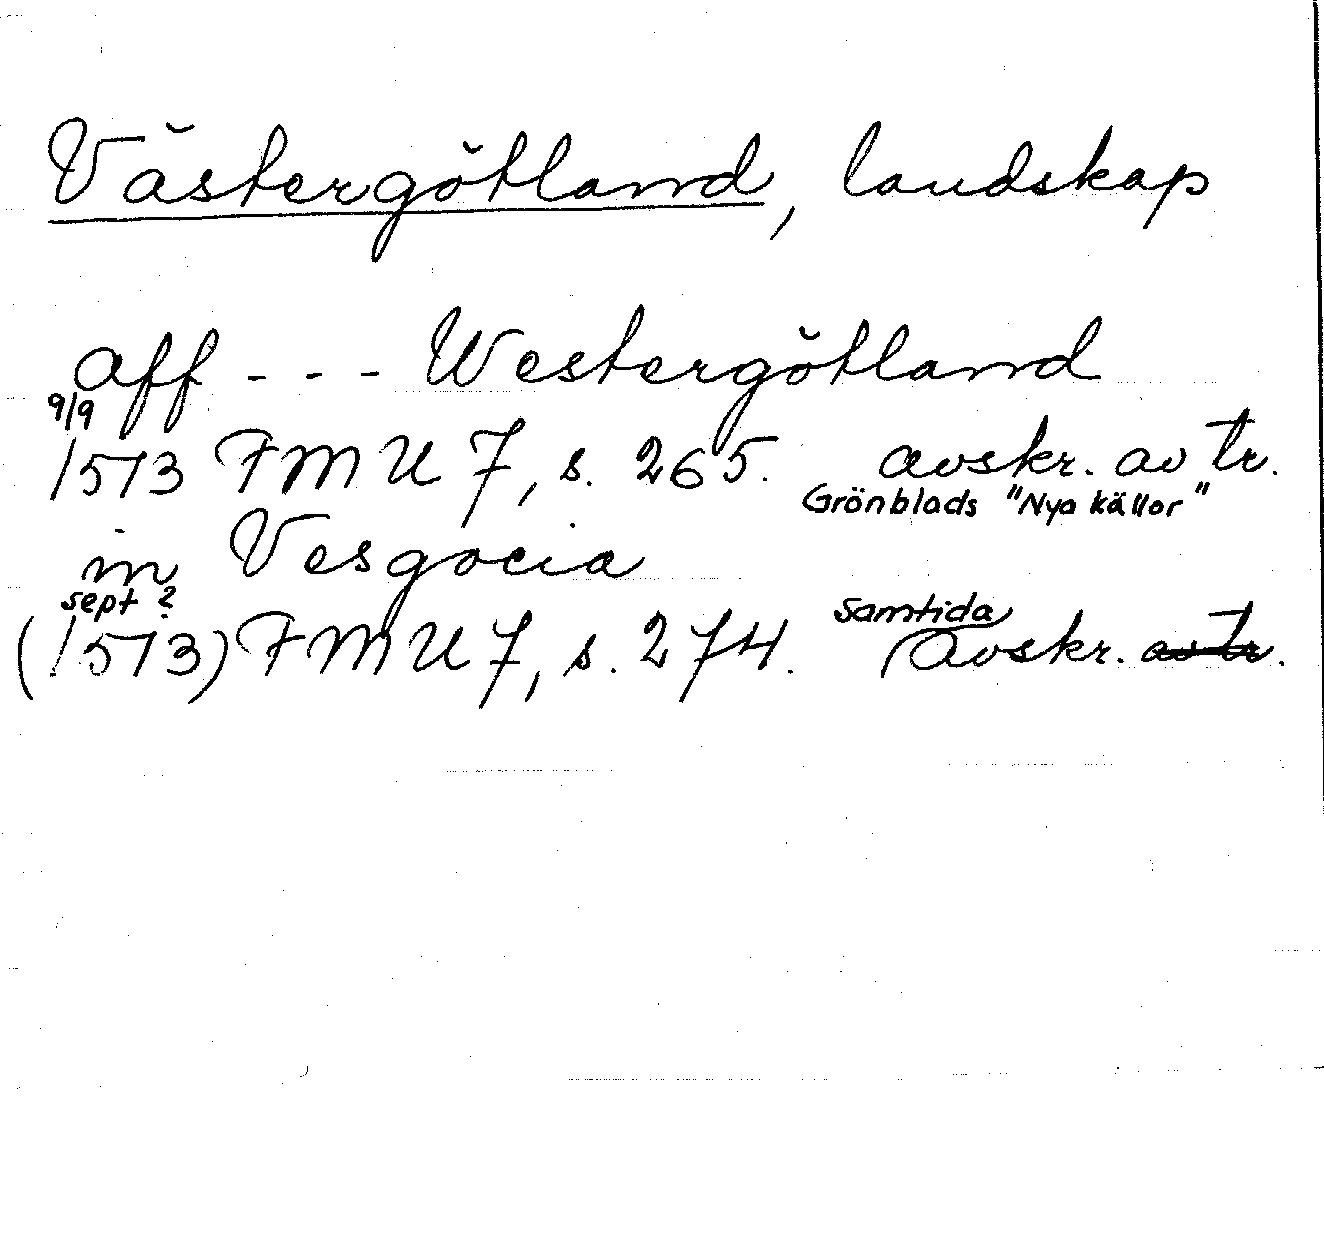 Västergötland, landskap
aff - - - Westergötland
9/9
1513 FMU 7, s. 265. avskr. av tr.
Grönblads "Nya källor"
in Vesgocia
sept ?
samtida
(1513) FMU 7, s. 274. avskr. av tr.